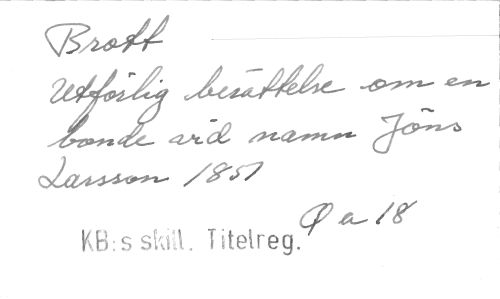 Brott
Utförlig berättelse om en
bonde vid namn Jöns
Larsson 1851
Q a 18
KB:s skill. Titelreg.